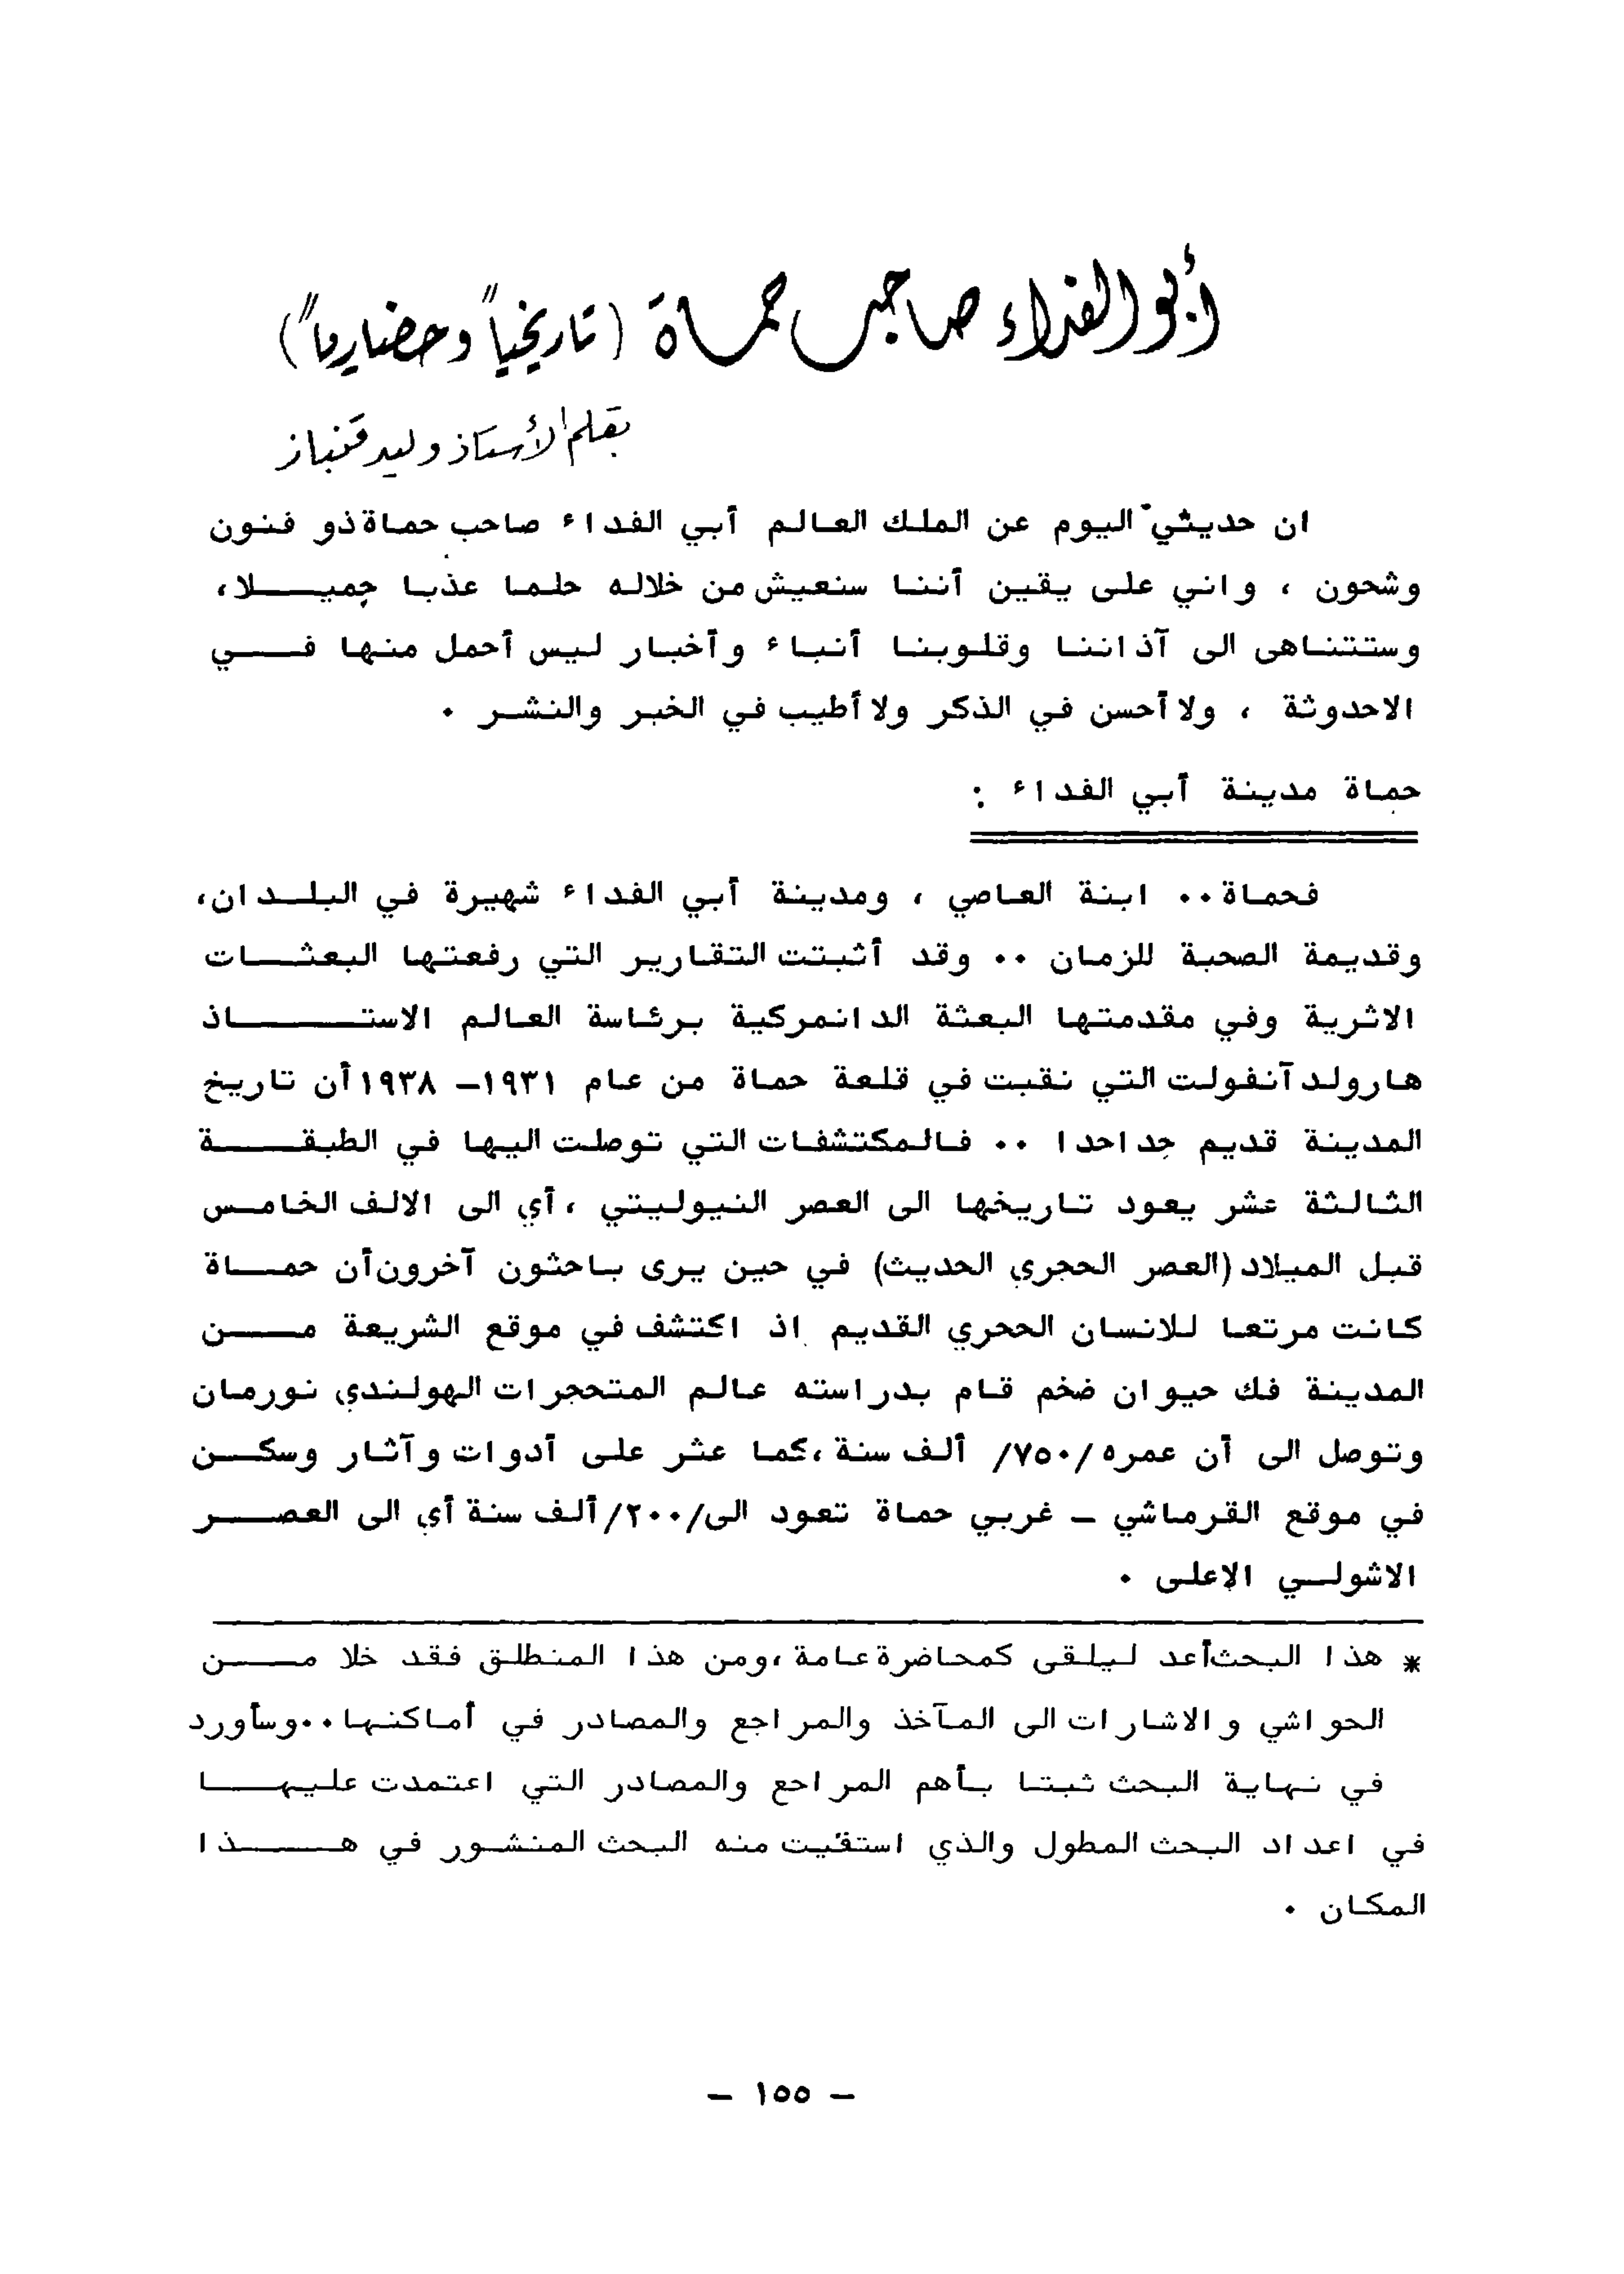 أبو الفداء صاحب حماة (تاريخياً وحضارياً)
بقلم الأستاذ وليد قنباز
ان حديثي اليوم عن الملك العالم أبي الفداء صاحب حماة ذو فنون
وشحون ، واني على يقين أننا سنعيش من خلاله حلما عذبا جميـــلا،
وستتناهى الى آذاننا وقلوبنا أنباء وأخبار ليس أحمل منها فـــي
الاحدوثة ، ولا أحسن في الذكر ولا أطيب في الخبر والنشـر ٠
حماة مدينة أبي الفداء :
فحماة٠٠ ابنة العاصي ، ومدينة أبي الفداء شهيرة في البلـدان،
وقديمة الصحبة للزمان ٠٠ وقد أثبتت التقارير التي رفعتها البعثـــات
الاثرية وفي مقدمتها البعثة الدانمركية برئاسة العالم الاستـــــاذ
هارولد آنفولت التي نقبت في قلعة حماة من عام ١٩٣١– ١٩٣٨ أن تاريخ
المدينة قديم جداحدا ٠٠ فالمكتشفات التي توصلت اليها في الطبقـــة
الثالثة عشر يعود تاريخها الى العصر النيوليتي ، أي الى الالف الخامـس
قبل الميلاد (العصر الحجري الحديث) في حين يرى باحثون آخرون أن حمـــاة
كانت مرتعا للانسان الححري القديم اذ اكتشف في موقع الشريعة مـــن
المدينة فك حيوان ضخم قام بدراسته عالم المتحجرات الهولندي نورمان
وتوصل الى أن عمره /٧٥٠/ ألف سنة ،كما عثر على أدوات وآثار وسكــن
في موقع القرماشي – غربي حماة تعود الى /٢٠٠/ ألف سنة أي الى العصـــر
الاشولـي الاعلى ٠
* هذا البحث أعد ليلقى كمحاضرة عامة ،ومن هذا المنطلق فقد خلا مـــن
الحواشي والاشارات الى المآخذ والمراجع والمصادر في أماكنها٠٠وسأورد
في نهاية البحث ثبتا بأهم المراحع والمصادر التي اعتمدت عليهـــا
في اعداد البحث المطول والذي استقيت منه البحث المنشـور في هـــذا
المكان ٠
– ١٥٥ –